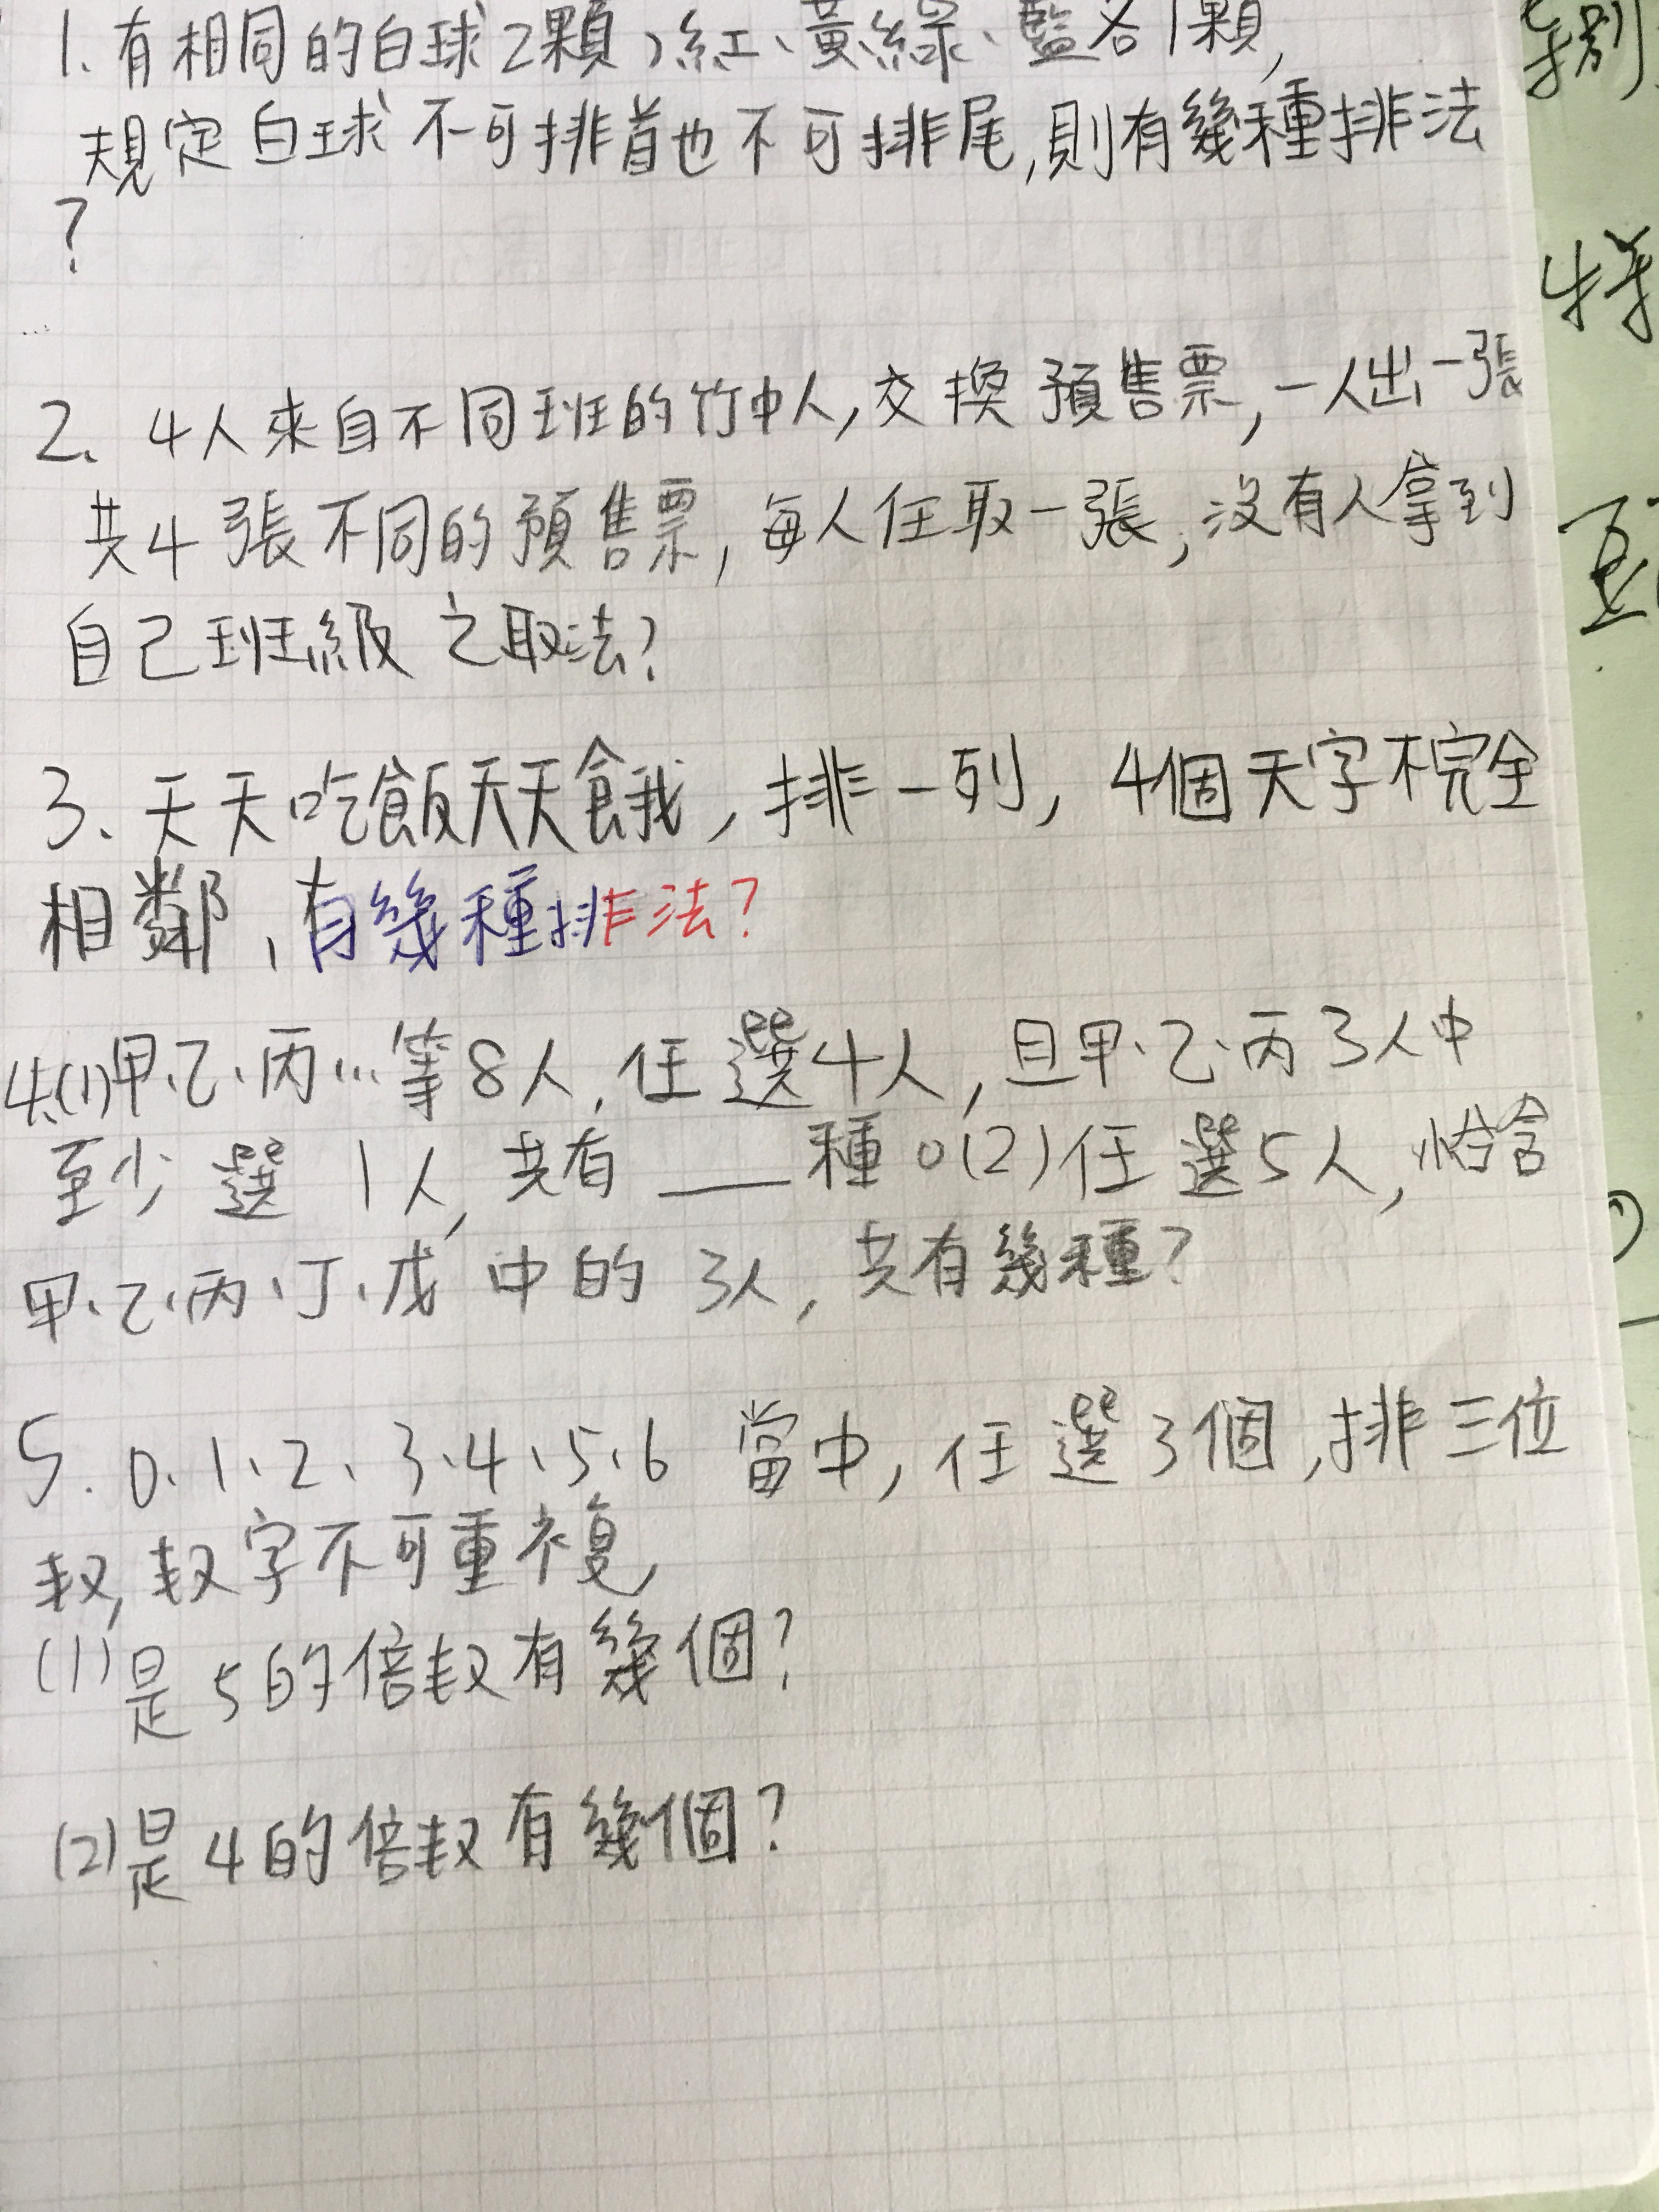 1. 有相同的白球2顆、紅、黃、綠、藍各1顆,
規定白球不可排首也不可排尾,則有幾種排法
?
2. 4人來自不同班的竹中人,交換預售票,一人出一張
共4張不同的預售票,每人任取一張,沒有人拿到
自己班級之取法?
3. 天天吃飯天天餓,排一列,4個天字不完全
相鄰,有幾種排法?
4.(1)甲、乙、丙…等8人,任選4人,且甲、乙、丙3人中
至少選1人,共有___種。(2)任選5人,恰含
甲、乙、丙、丁、戊中的3人,共有幾種?
5. 0、1、2、3、4、5、6當中,任選3個,排三位
数,数字不可重複,
(1)是5的倍数有幾個?
(2)是4的倍数有幾個?
特